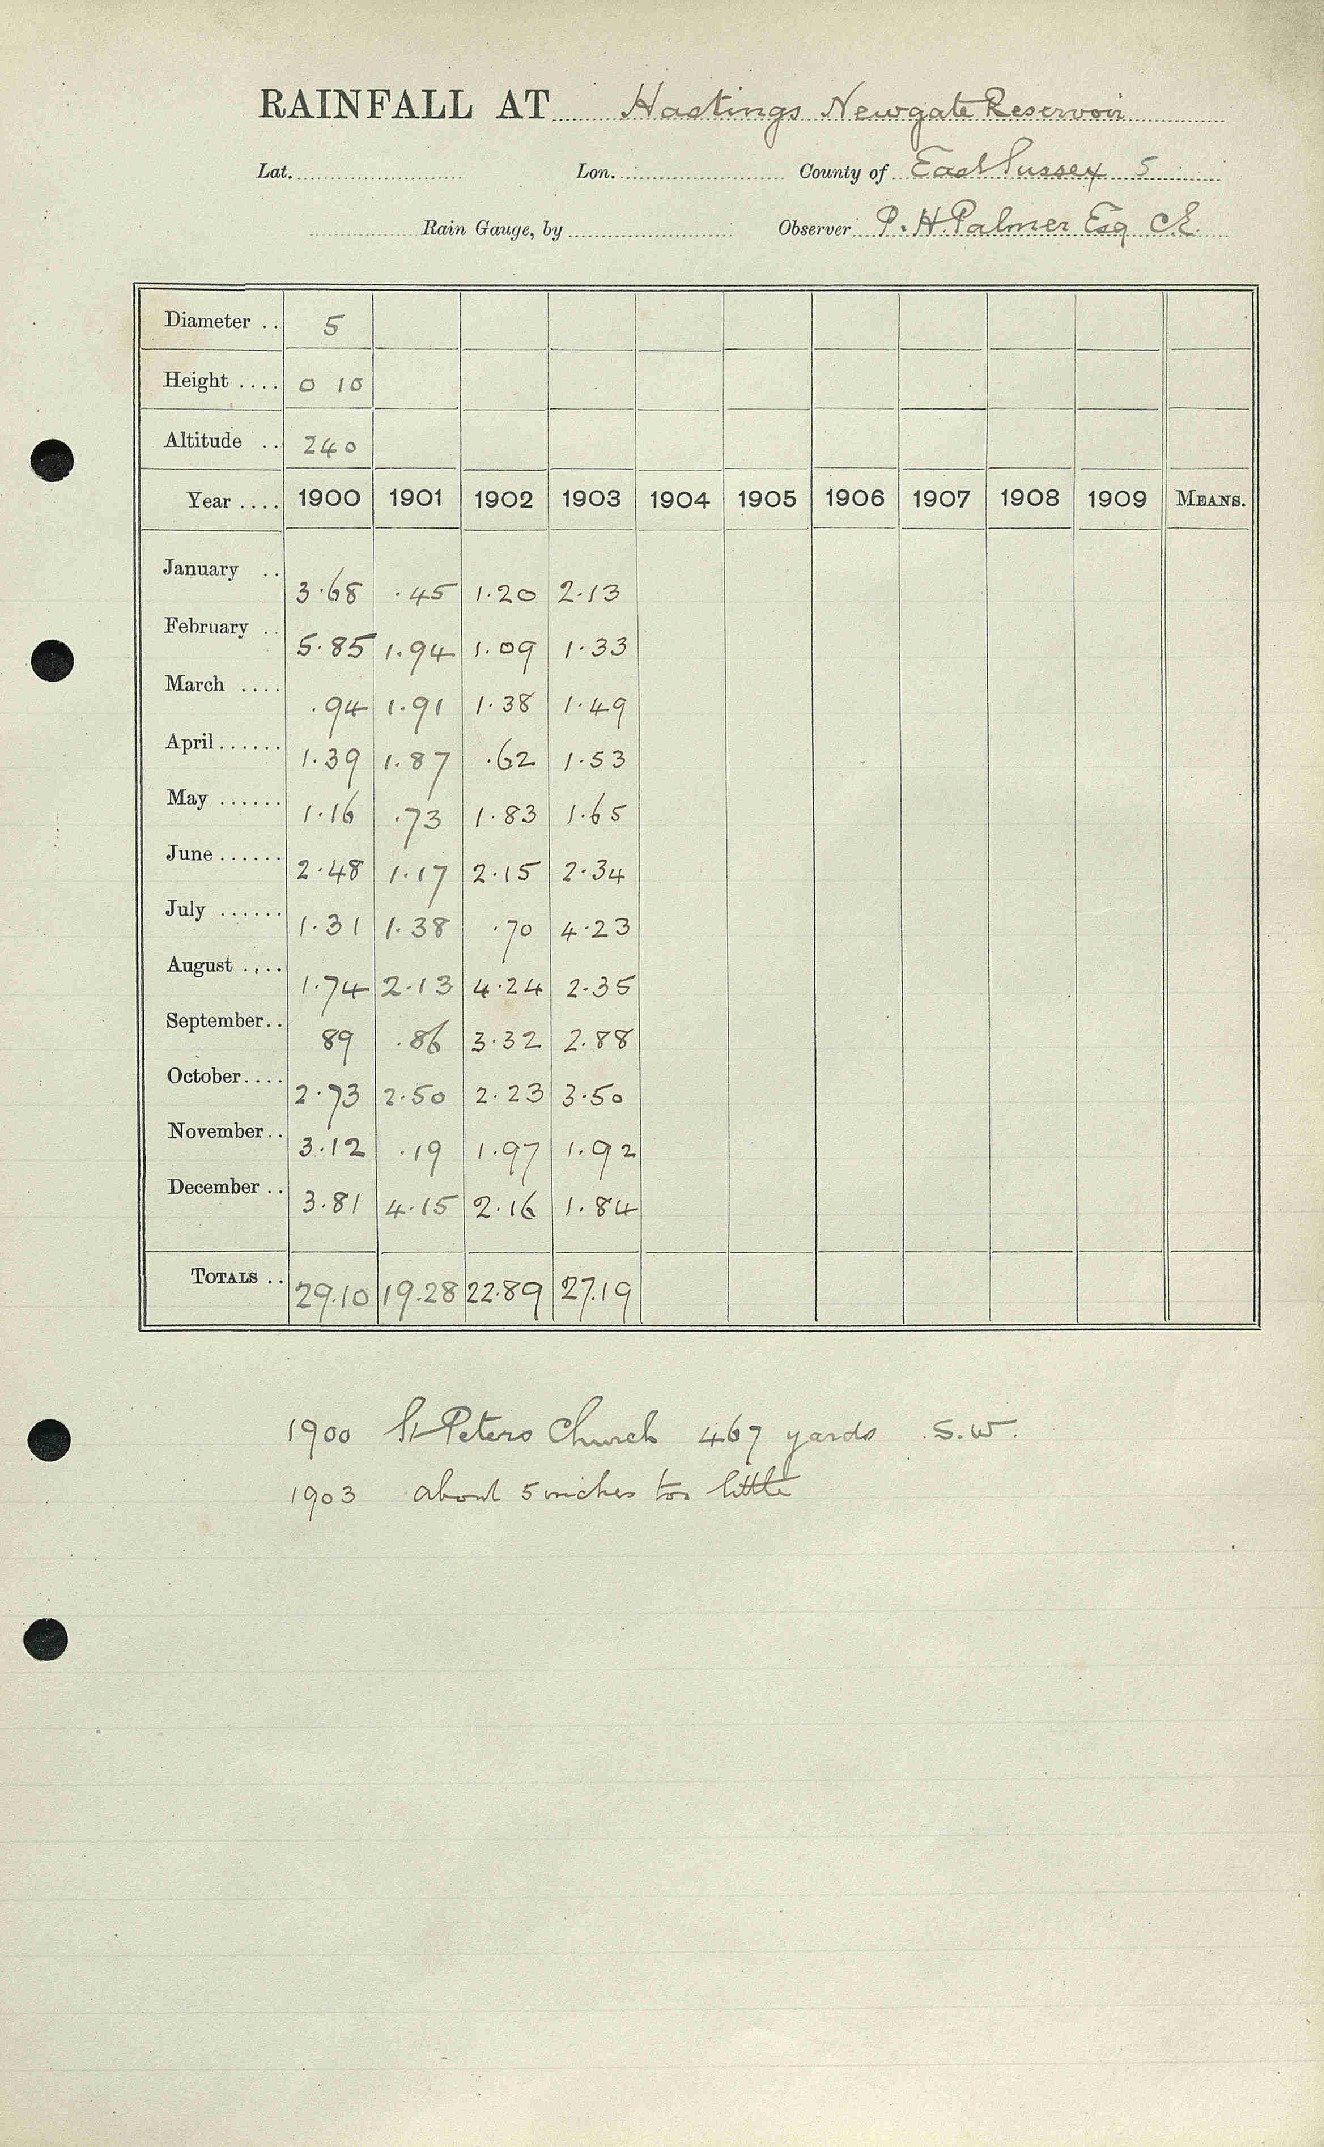 RAINFALL AT Hastings Newgate Reservoir
Lat. Lon. County of East Sussex 5
Rain Gauge, by Observer P. H. Palmer Esq C.E.
Diameter .. 5
Height .... 0 10
Altitude .. 240
Year .... 1900 1901 1902 1903 1904 1905 1906 1907 1908 1909 MEANS.
January .. 3.68 .45 1.20 2.13
February .. 5.85 1.94 1.09 1.33
March .... .94 1.91 1.38 1.49
April...... 1.39 1.87 .62 1.53
May ...... 1.16 .73 1.83 1.65
June ...... 2.48 1.17 2.15 2.34
July ...... 1.31 1.38 .70 4.23
August .... 1.74 2.13 4.24 2.35
September.. 89 .86 3.32 2.88
October.... 2.73 2.50 2.23 3.50
November.. 3.12 .19 1.97 1.92
December .. 3.81 4.15 2.16 1.84
TOTALS .. 29.10 19.28 22.89 27.19
1900 St Peters Church 467 yards S.W.
1903 about 5 inches too little